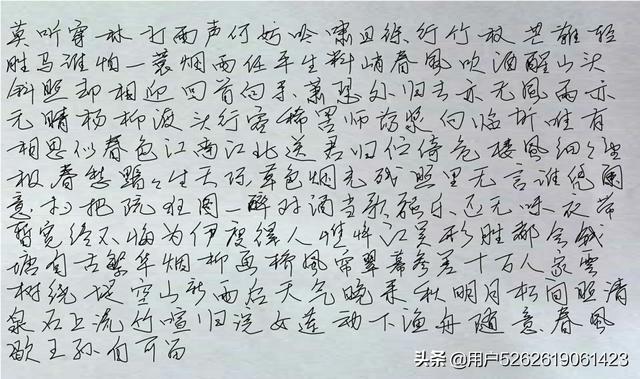 莫听穿林打雨声何妨吟啸且徐行竹杖芒鞋轻
胜马谁怕一蓑烟雨任平生料峭春風吹酒醒山头
斜照却相迎回首向来萧瑟处归去亦无風雨亦
无晴杨柳渡头行客稀罟师荡桨向临圻唯有
相思似春色江南江北送君归伫倚危楼風细々望
极春愁黯々生天际草色烟光残照里无言谁凭阑
意拟把疏狂图一醉对酒当歌强乐还无味衣带
暂宽终不悔为伊消得人憔悴江吴形胜都会钱
塘自古繁华烟柳画桥風帘翠幕参差十万人家云
树绕堤空山新雨后天气晚来秋明月松间照清
泉石上流竹喧归浣女莲动下渔舟随意春風
歇王孙自可留
头条 @用户5262619061423